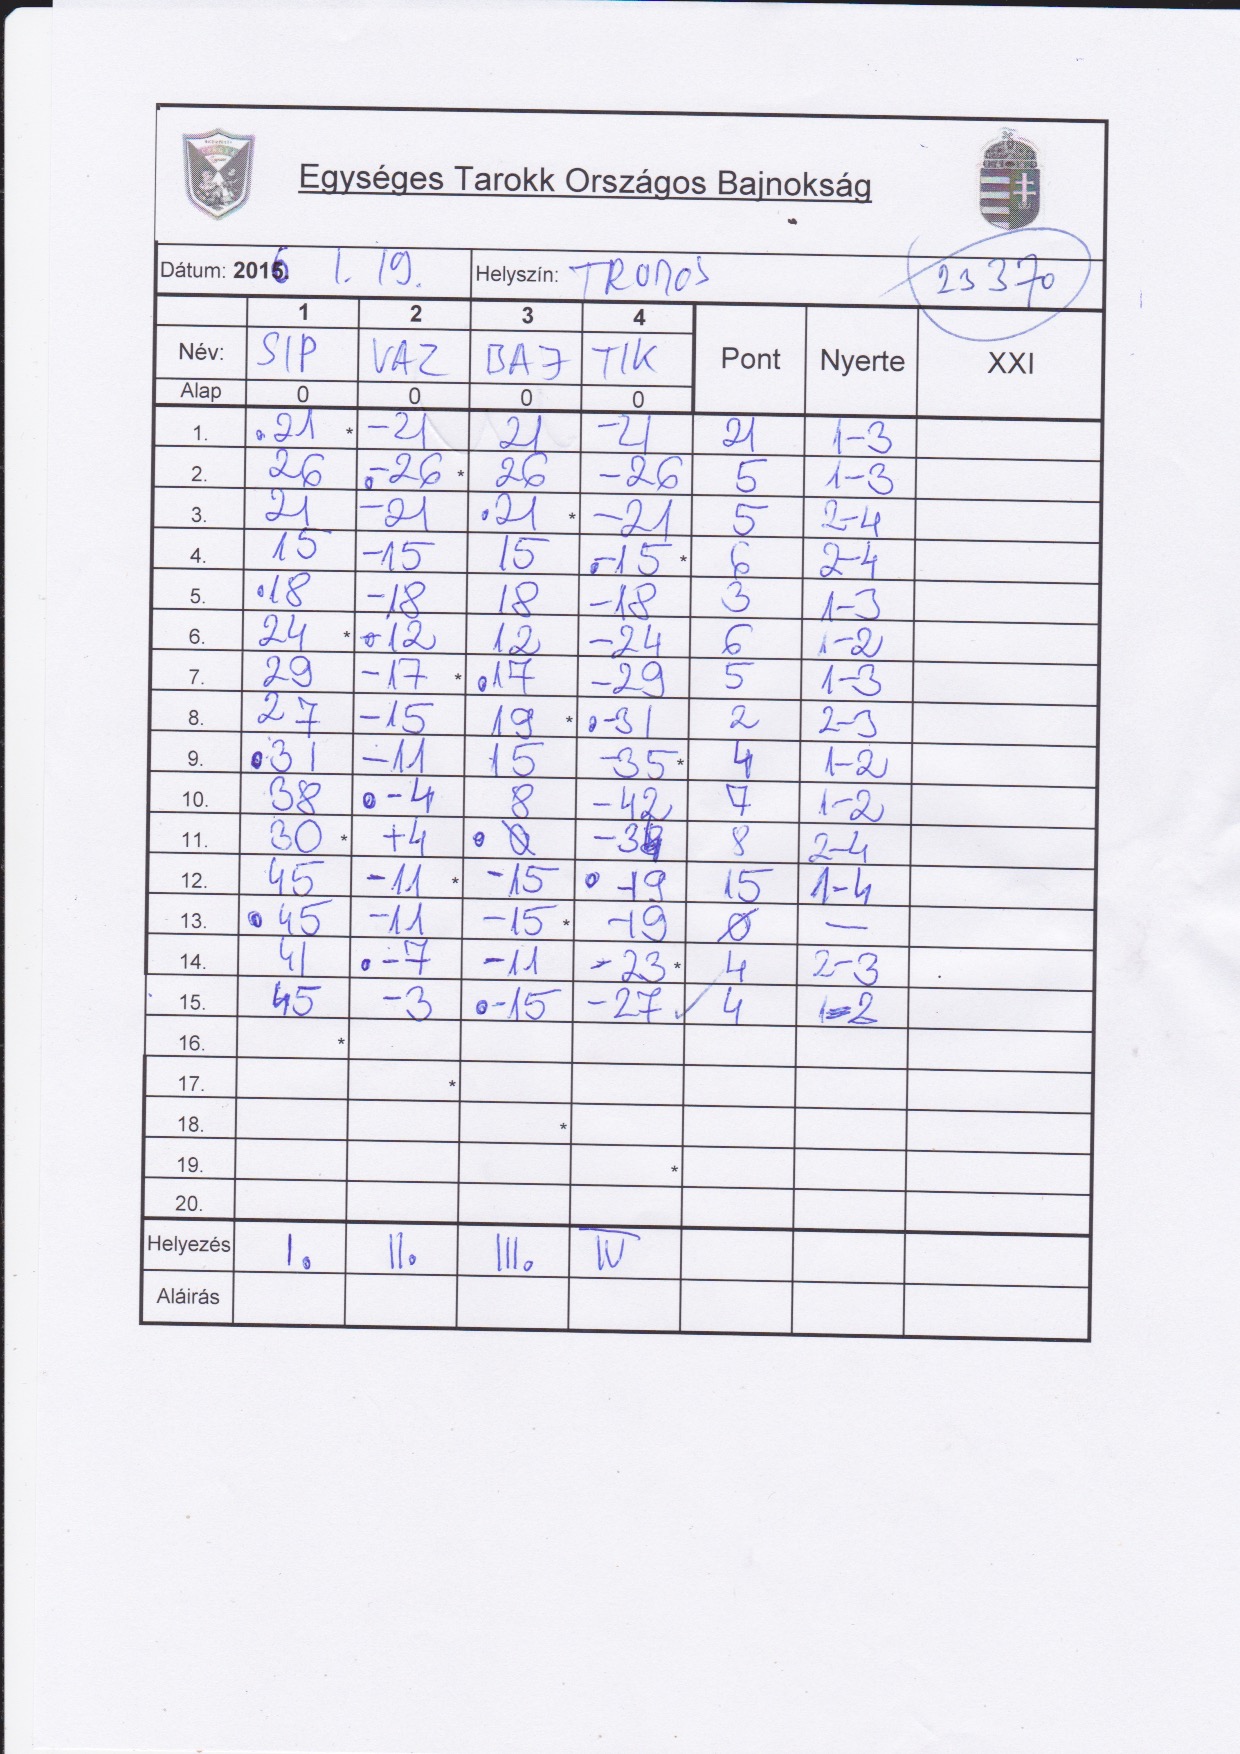 Egységes Tarokk Országos Bajnokság
Dátum: 2016. I. 19. Helyszín: TROMOS 23 370
1 2 3 4
Név: SIP VAZ BAJ TIK Pont Nyerte XXI
Alap 0 0 0 0
1. .21 * -21 21 -21 21 1-3
2. 26 .-26 * 26 -26 5 1-3
3. 21 -21 .21 * -21 5 2-4
4. 15 -15 15 .-15 * 6 2-4
5. .18 -18 18 -18 3 1-3
6. 24 * .-12 12 -24 6 1-2
7. 29 -17 * .17 -29 5 1-3
8. 27 -15 19 * .-31 2 2-3
9. .31 -11 15 -35 * 4 1-2
10. 38 .-4 8 -42 7 1-2
11. 30 * +4 . 0 -34 8 2-4
12. 45 -11 * -15 . -19 15 1-4
13. .45 -11 -15 * -19 0 —
14. 41 .-7 -11 -23 * 4 2-3
15. 45 -3 .-15 -27 ✓ 4 1-2
16. *
17. *
18. *
19. *
20.
Helyezés I. II. III. IV
Aláirás